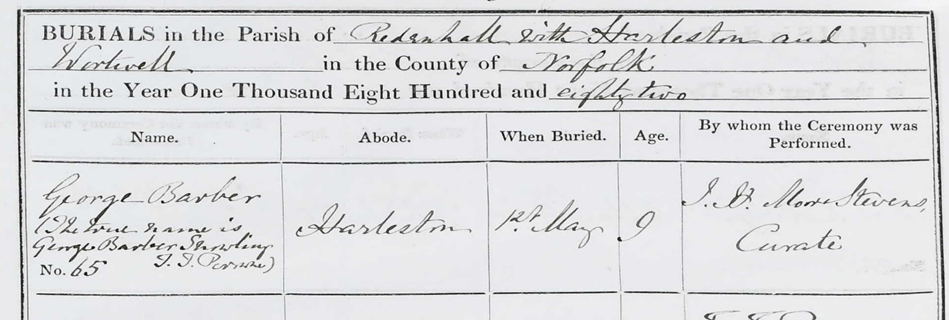 BURIALS in the Parish of Redenhall with Harleston and
Wortwell in the County of Norfolk
in the Year One Thousand Eight Hundred and eighty two
Name. Abode. When Buried. Age. By whom the Ceremony was Performed.
George Barber
(The true name is
George Barber Snowling
J. J. Perowne)
No. 65
Harleston
1st. May
9
J. H. Moore Stevens,
Curate